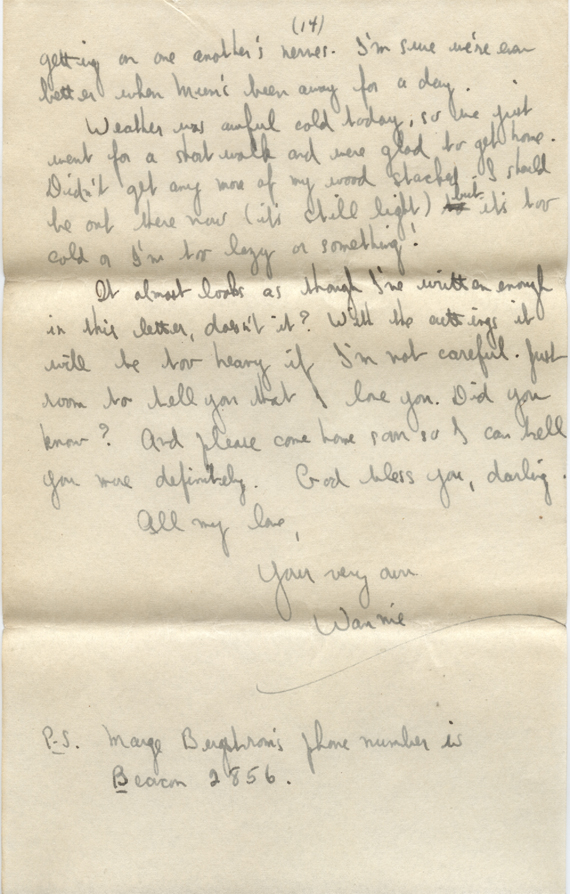 (14)
getting on one another's nerves. I'm sure we're even
better when Mum's been away for a day.
Weather was awful cold today, so we just
went for a short walk and were glad to get home.
Didn't get any more of my wood stacked - I should
be out there now (it's still light) but it's too
cold or I'm too lazy or something!
It almost looks as though I've written enough
in this letter, doesn't it? With the cuttings it
will be too heavy if I'm not careful. Just
room to tell you that I love you. Did you
know? And please come home soon so I can tell
you more definitely. God bless you, darling.
All my love,
Your very own
Wannie
P.S. Marge Bergstrom's phone number is
Beacon 2856.